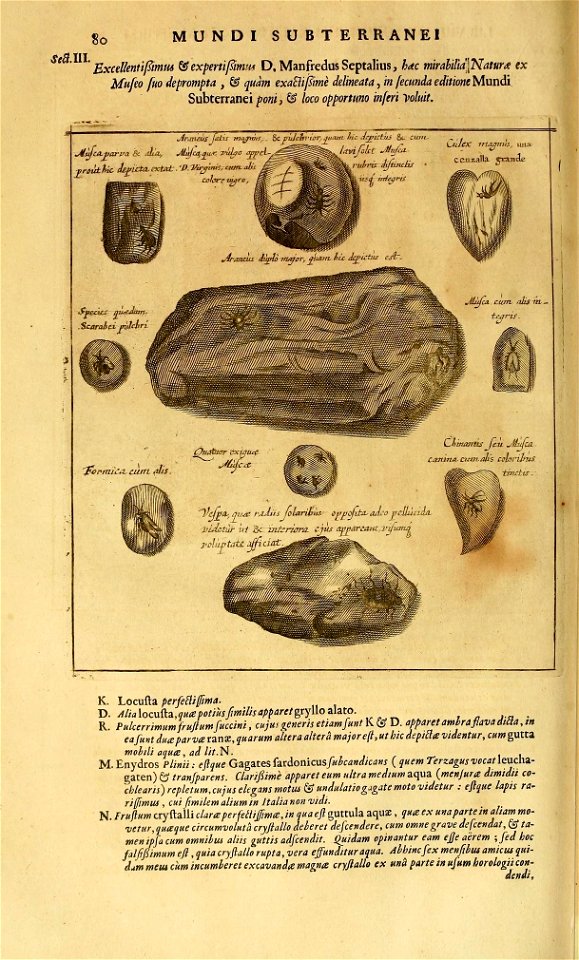 80 MUNDI SUBTERRANEI
Sect. III.
Excellentiſſimus & expertiſſimus D. Manfredus Septalius, hæc mirabilia Naturæ ex
Muſeo ſuo deprompta, & quàm exactiſſimè delineata, in ſecunda editione Mundi
Subterranei poni, & loco opportuno inſeri voluit.
Muſca parva & alia,
prout hic depicta extat.
Araneus ſatis magnus, & pulchrior, quam hic depictus & cum
Muſca quæ vulgo appel lari ſolet Muſca
D. Virginis, cum alis rubris diſtinctis
colore nigro, uſq integris
Culex magnus, una
cenzalla grande
Araneus duplo major, quam hic depictus eſt.
Species quædam
Scarabei pulchri
Muſca cum alis in-
tegris.
Quatuor exiguæ
Muſcæ
Chinantis ſeu Muſca
canina cum alis coloribus
tinctis.
Formica cum alis.
Veſpa, quæ radiis ſolaribus oppoſita adeo pellucida
videtur ut & interiora ejus appareant, viſumq
voluptate afficiat.
K. Locuſta perfectiſſima.
D. Alia locuſta, quæ potiùs ſimilis apparet gryllo alato.
R. Pulcerrimum fruſtum ſuccini, cujus generis etiam ſunt K & D. apparet ambra flava dicta, in
ea ſunt duæ parvæ ranæ, quarum altera alterâ major eſt, ut hic depictæ videntur, cum gutta
mobili aquæ, ad lit. N.
M. Enydros Plinii: eſtque Gagates ſardonicus ſubcandicans (quem Terzagus vocat leucha-
gaten) & tranſparens. Clariſſimè apparet eum ultra medium aqua (menſuræ dimidii co-
chlearis) repletum, cujus elegans motus & undulatio gagate moto videtur: eſtque lapis ra-
riſſimus, cui ſimilem alium in Italia non vidi.
N. Fruſtum cryſtalli claræ perfectiſſimæ, in qua eſt guttula aquæ, quæ ex una parte in aliam mo-
vetur, quæque circumvolutâ cryſtallo deberet deſcendere, cum omne grave deſcendat, & ta-
men ipſa cum omnibus aliis guttis adſcendit. Quidam opinantur eam eſſe aërem; ſed hoc
falſiſſimum eſt, quia cryſtallo rupta, vera effunditur aqua. Abhinc ſex menſibus amicus qui-
dam meus cùm incumberet excavandæ magnæ cryſtallo ex unâ parte in uſum horologii con-
dendi,